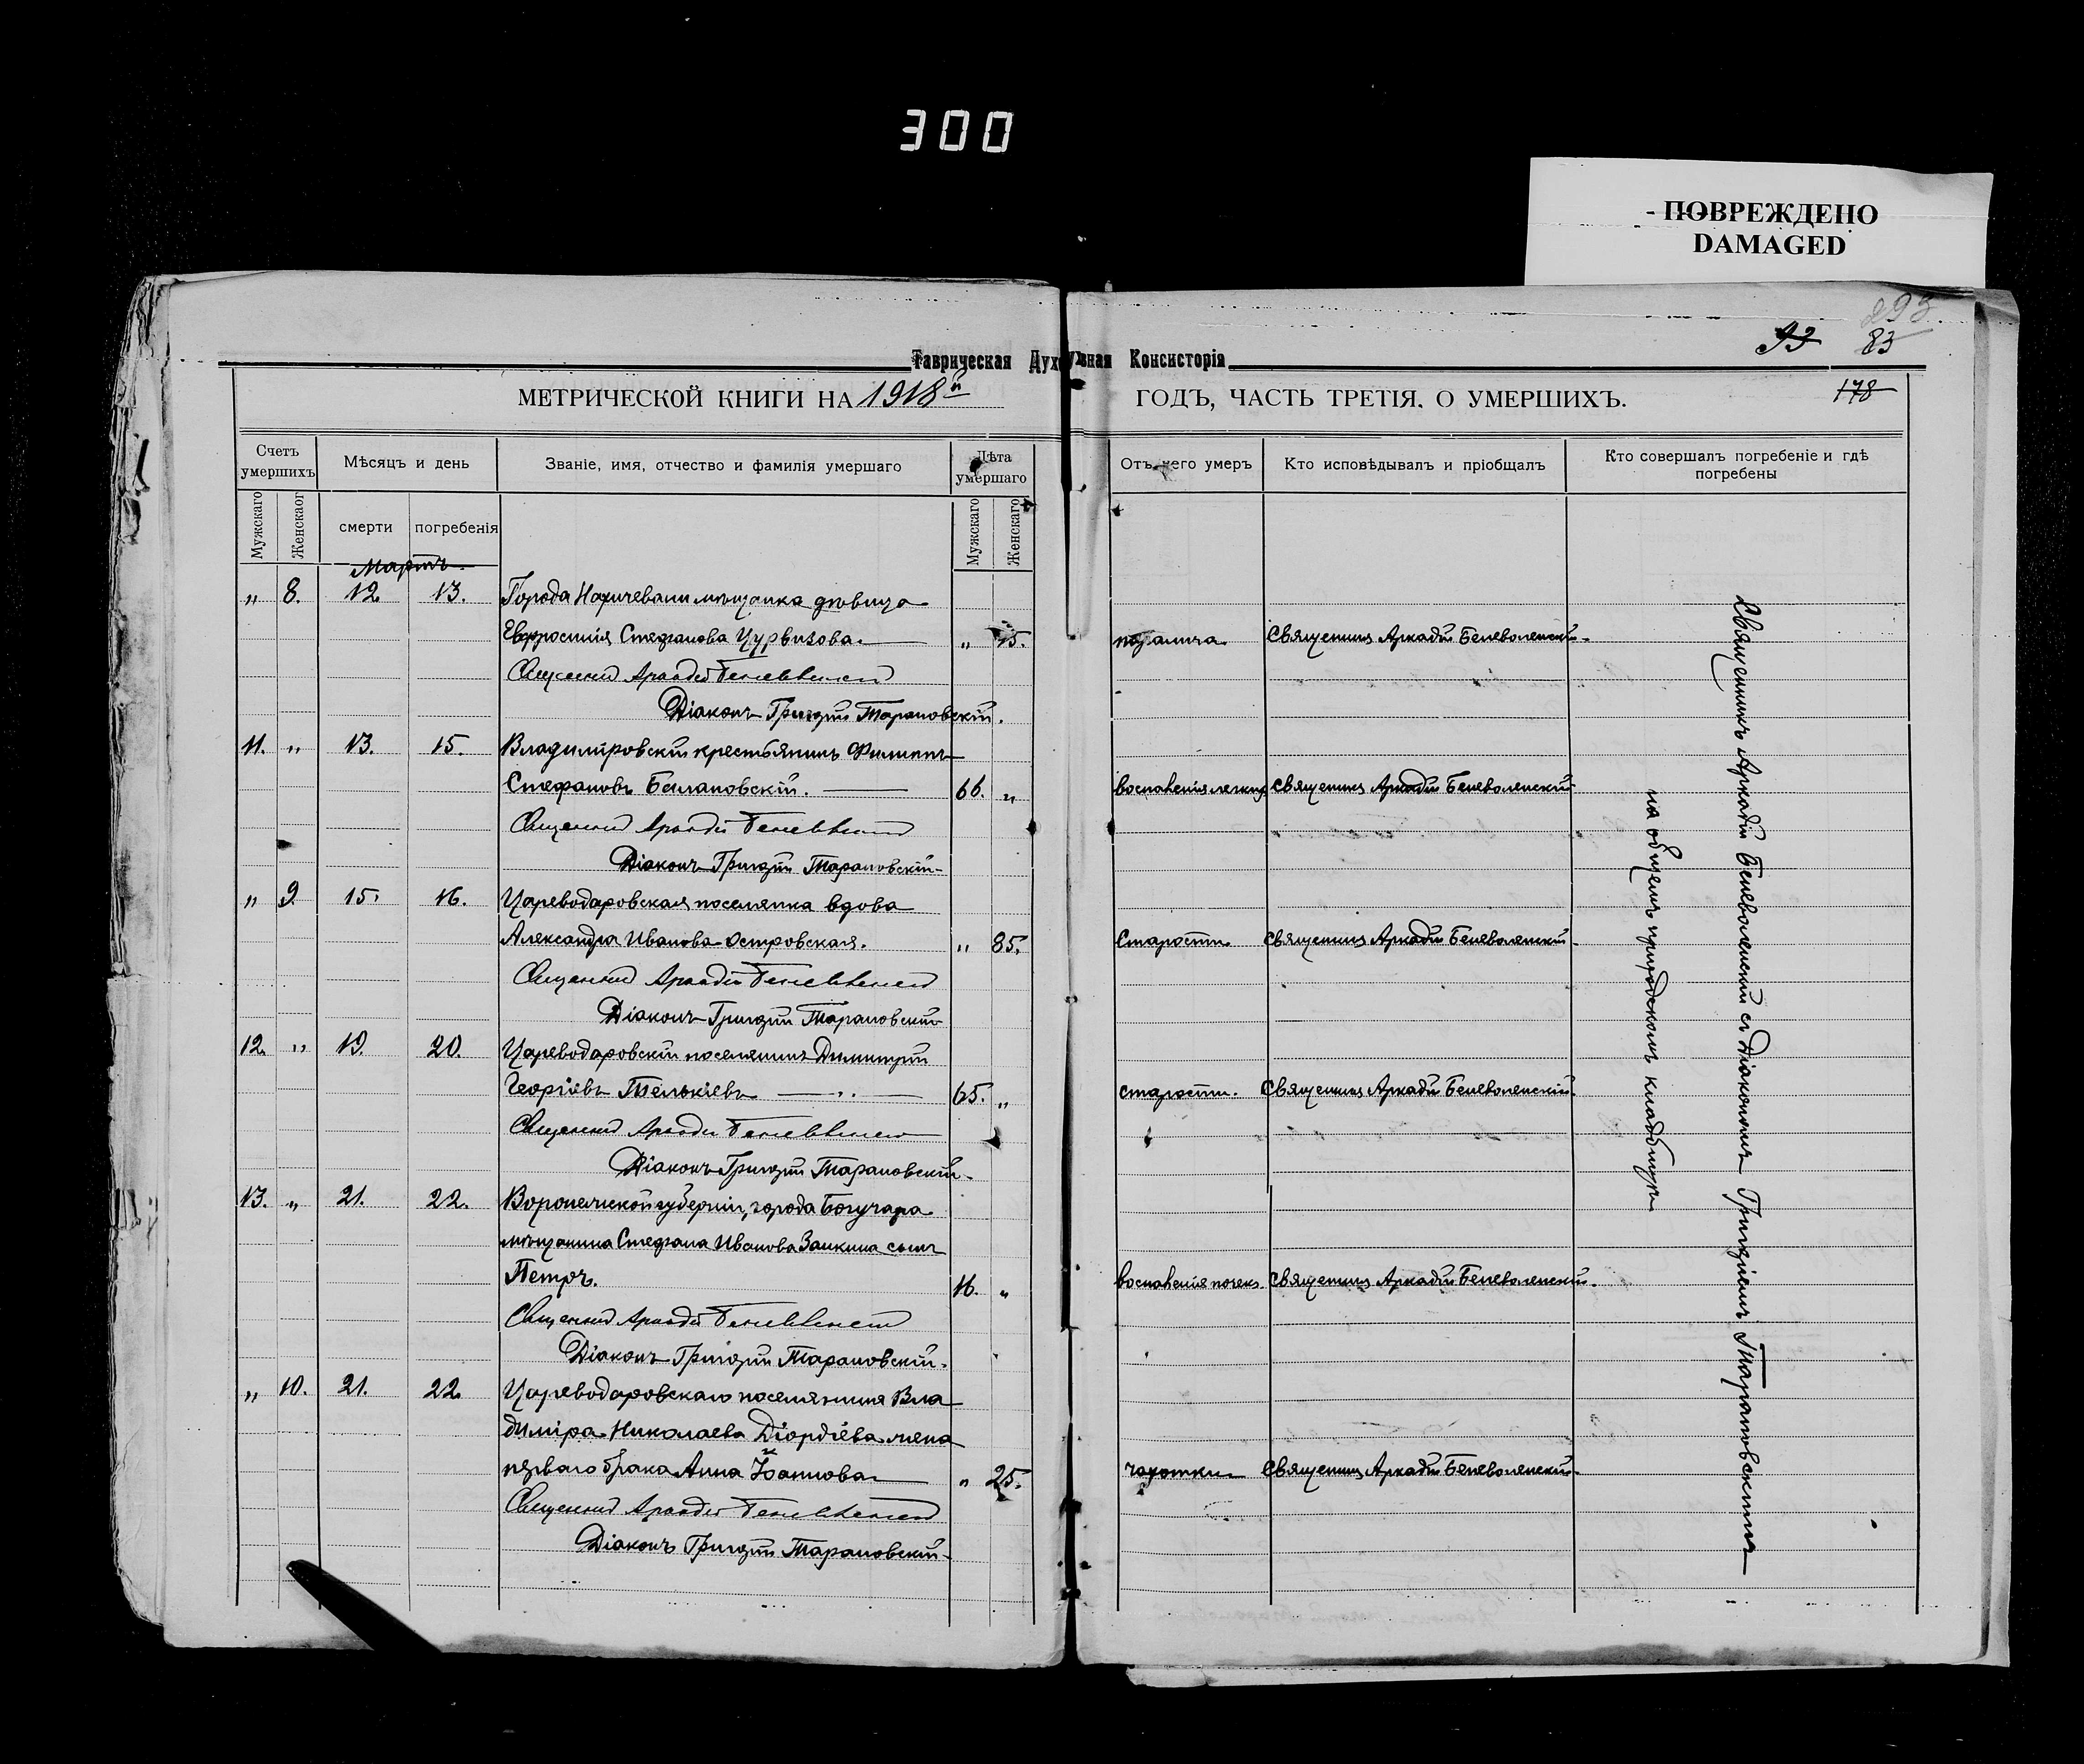 300
- ПОВРЕЖДЕНО
DAMAGED
293
93 83
Таврическая Духовная Консисторія
МЕТРИЧЕСКОЙ КНИГИ НА 1918й ГОДЪ, ЧАСТЬ ТРЕТІЯ, О УМЕРШИХЪ.
178
Счетъ умершихъ
Мѣсяцъ и день
Званіе, имя, отчество и фамилія умершаго
Лѣта умершаго
Отъ чего умеръ
Кто исповѣдывалъ и пріобщалъ
Кто совершалъ погребеніе и гдѣ погребены
Мужскаго
Женскаог
смерти
погребенія
Мужскаго
Женскаго
Мартъ
" 8. 12 13. Города Нахичевани мѣщанка дѣвица
Евфросинія Стефанова " 15. паралича Священникъ Аркадій Беневоленскій
Священникъ Аркадій Беневоленскій
Діаконъ Григорій Тарановскій.
11. " 13. 15. Владиміровскій крестьянинъ Филиппъ
Стефановъ Балановскій. 66. " воспаленія легкихъ Священникъ Аркадій Беневоленскій
Священникъ Аркадій Беневоленскій
Діаконъ Григорій Тарановскій
" 9. 15. 16. Цареводаровская поселянка вдова
Александра Иванова Островская. " 85. Старости Священникъ Аркадій Беневоленскій
Священникъ Аркадій Беневоленскій
Діаконъ Григорій Тарановскій
12. " 19. 20. Цареводаровскій поселянинъ Димитрій
Георгіевъ Телькіевъ 65. " старости. Священникъ Аркадій Беневоленскій.
Священникъ Аркадій Беневоленскій
Діаконъ Григорій Тарановскій
13. " 21. 22. Воронежской губерніи, города Богучара
мѣщанина Стефана Иванова Заикина сынъ
Петръ. 16. " воспаленія почекъ Священникъ Аркадій Беневоленскій.
Священникъ Аркадій Беневоленскій
Діаконъ Григорій Тарановскій.
" 10. 21. 22. Цареводаровскаго поселянина Вла
диміра Николаева Діордіева жена
перваго брака Анна Іоаннова " 25. чахотки Священникъ Аркадій Беневоленскій
Священникъ Аркадій Беневоленскій
Діаконъ Григорій Тарановскій
Священникъ Аркадій Беневоленскій съ Діакономъ Григоріемъ Тарановскимъ
на общемъ приходскомъ кладбищѣ